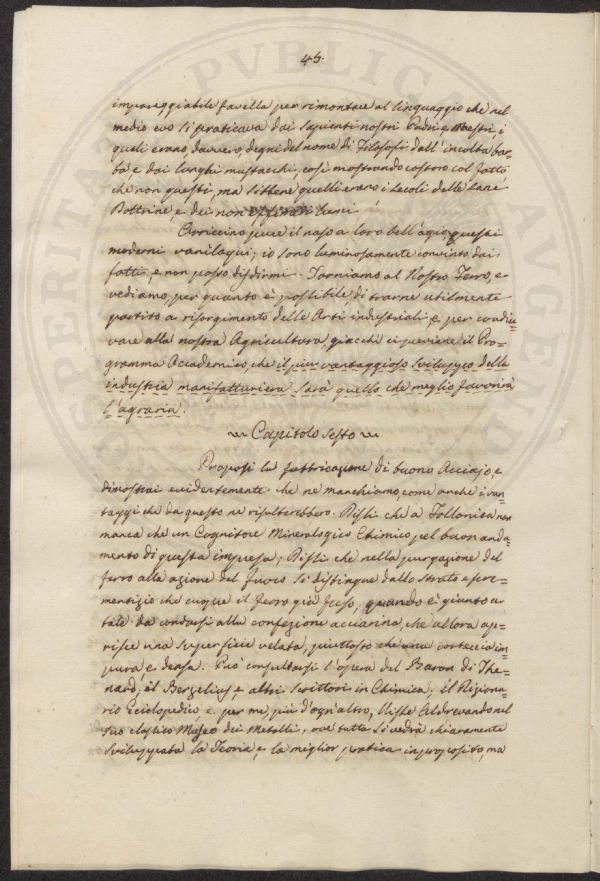 45.
impareggiabile favella per rimontare al linguaggio che nel
medio evo si praticava dai sapienti nostri Padri, e Maestri, i
quali erano davvero, degni del nome di Filosofi dall'incolta bar=
ba e dai lunghi mustacchi, così mostrando costoro col fatto
che non questi, ma sibbene quelli erano i secoli delle sane
Dottrine e dei non lumi
Arriccino pure il naso a loro bell'agio, questi
moderni vaniloqui; io sono luminosamente convinto dai
fatti, e non posso disdirmi. Torniamo al Nostro Ferro, e
vediamo, per quanto è possibile, di trarne utilmente
partito a risorgimento delle Arti industriali e per condiu=
vare alla nostra Agricoltura, giacchè ci previene il Pro=
gramma Accademico, che il più vantaggioso sviluppo della
industria manifatturiera sarà quello che meglio favorirà
l'agraria.
Capitolo Sesto
Proposi la fabbricazione di buono Acciajo, e
dimostrai evidentemente che ne manchiamo come anche i van=
taggi che da questo ne risulterebbero. Dissi che a Follonica non
manca che un Cognitore Mineralogico Chimico pel buon anda=
mento di questa impresa; Dissi che nella purgazione del
ferro alla azione del fuoco si distingue dallo strato escre=
mentizio che cuopre il ferro già fuso, quando è giunto a
tale da condursi alla confezione acciarina, che allora ap=
risce una superficie velata, piuttosto che una corteccia im=
pura e densa. Può consultarsi l'opera del Baron di The=
nard, il Berzelius, e altri scrittori in Chimica, il Diziona=
rio Eciclopedico e per me, più d'ogn'altro, Ulisse Aldrevando nel
suo classico Museo dei Metalli, ove tutta si vedrà chiaramente
sviluppata la Teoria, e la miglior pratica in proposito, ma